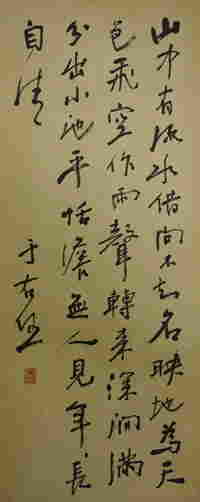 山中有流水借問不知名映地為天
色飛空作雨聲轉來深澗滿
分出小池平恬澹無人見年々長
自清
于右任